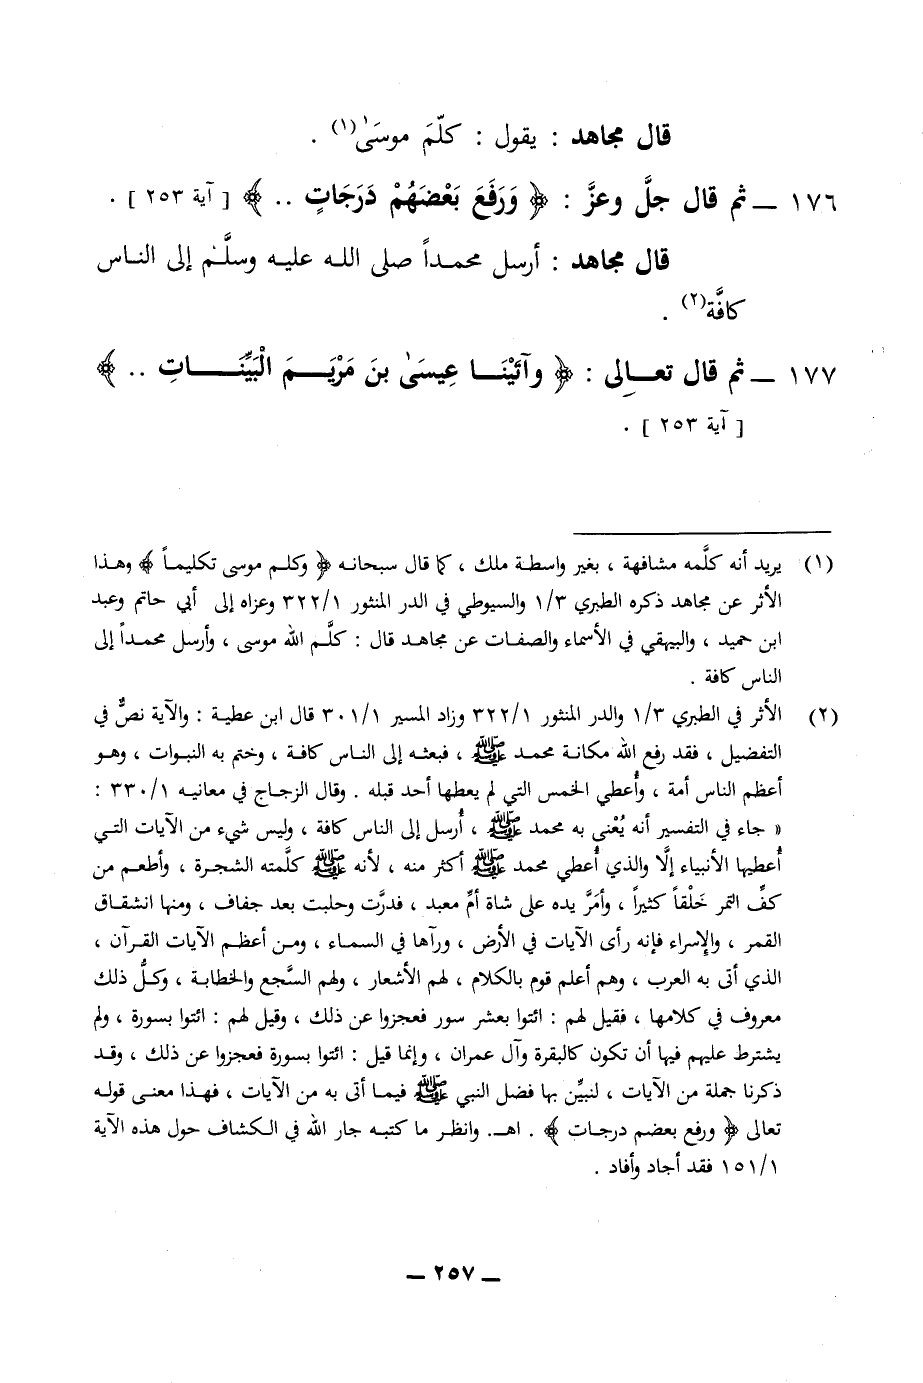 قال مجاهد : يقول : كلَّمَ موسَىٰ(١) .
١٧٦ ــ ثم قال جلَّ وعزَّ : ﴿ وَرَفَعَ بَعْضَهُمْ دَرَجَاتٍ .. ﴾ [ آية ٢٥٣ ] .
قال مجاهد : أرسل محمداً صلى الله عليه وسلَّم إلى الناس
كافَّة(٢) .
١٧٧ ــ ثم قال تعالى : ﴿ وآتَيْنَا عِيسَىٰ بنَ مَرْيَمَ الْبَيِّنَاتِ .. ﴾
[ آية ٢٥٣ ] .
(١) يريد أنه كلَّمه مشافهة ، بغير واسطة ملك ، كما قال سبحانه ﴿ وكلم موسى تكليماً ﴾ وهذا
الأثر عن مجاهد ذكره الطبري ١/٣ والسيوطي في الدر المنثور ٣٢٢/١ وعزاه إلى أبي حاتم وعبد
ابن حميد ، والبيهقي في الأسماء والصفات عن مجاهد قال : كلَّم الله موسى ، وأرسل محمداً إلى
الناس كافة .
(٢) الأثر في الطبري ١/٣ والدر المنثور ٣٢٢/١ وزاد المسير ٣٠١/١ قال ابن عطية : والآية نصٌّ في
التفضيل ، فقد رفع الله مكانة محمد ﷺ ، فبعثه إلى الناس كافة ، وختم به النبوات ، وهو
أعظم الناس أمة ، وأُعطي الخمس التي لم يعطها أحد قبله . وقال الزجاج في معانيه ٣٣٠/١ :
« جاء في التفسير أنه يُعْني به محمد ﷺ ، أُرسل إلى الناس كافة ، وليس شيء من الآيات التي
أُعطيها الأنبياء إلَّا والذي أُعطي محمد ﷺ أكثر منه ، لأنه ﷺ كلَّمته الشجرة ، وأطعم من
كفِّ التمر خَلْقاً كثيراً ، وأمَرَّ يده على شاة أمِّ معبد ، فدرَّت وحلبت بعد جفاف ، ومنها انشقاق
القمر ، والإسراء فإنه رأى الآيات في الأرض ، ورآها في السماء ، ومن أعظم الآيات القرآن ،
الذي أتى به العرب ، وهم أعلم قوم بالكلام ، لهم الأشعار ، ولهم السَّجع والخطابة ، وكلُّ ذلك
معروف في كلامها ، فقيل لهم : ائتوا بعشر سور فعجزوا عن ذلك ، وقيل لهم : ائتوا بسورة ، ولم
يشترط عليهم فيها أن تكون كالبقرة وآل عمران ، وإنما قيل : ائتوا بسورة فعجزوا عن ذلك ، وقد
ذكرنا جملة من الآيات ، لنبيِّن بها فضل النبي ﷺ فيما أتى به من الآيات ، فهذا معنى قوله
تعالى ﴿ ورفع بعضم درجات ﴾ . اهـ. وانظر ما كتبه جار الله في الكشاف حول هذه الآية
١٥١/١ فقد أجاد وأفاد .
ــ ٢٥٧ ــ